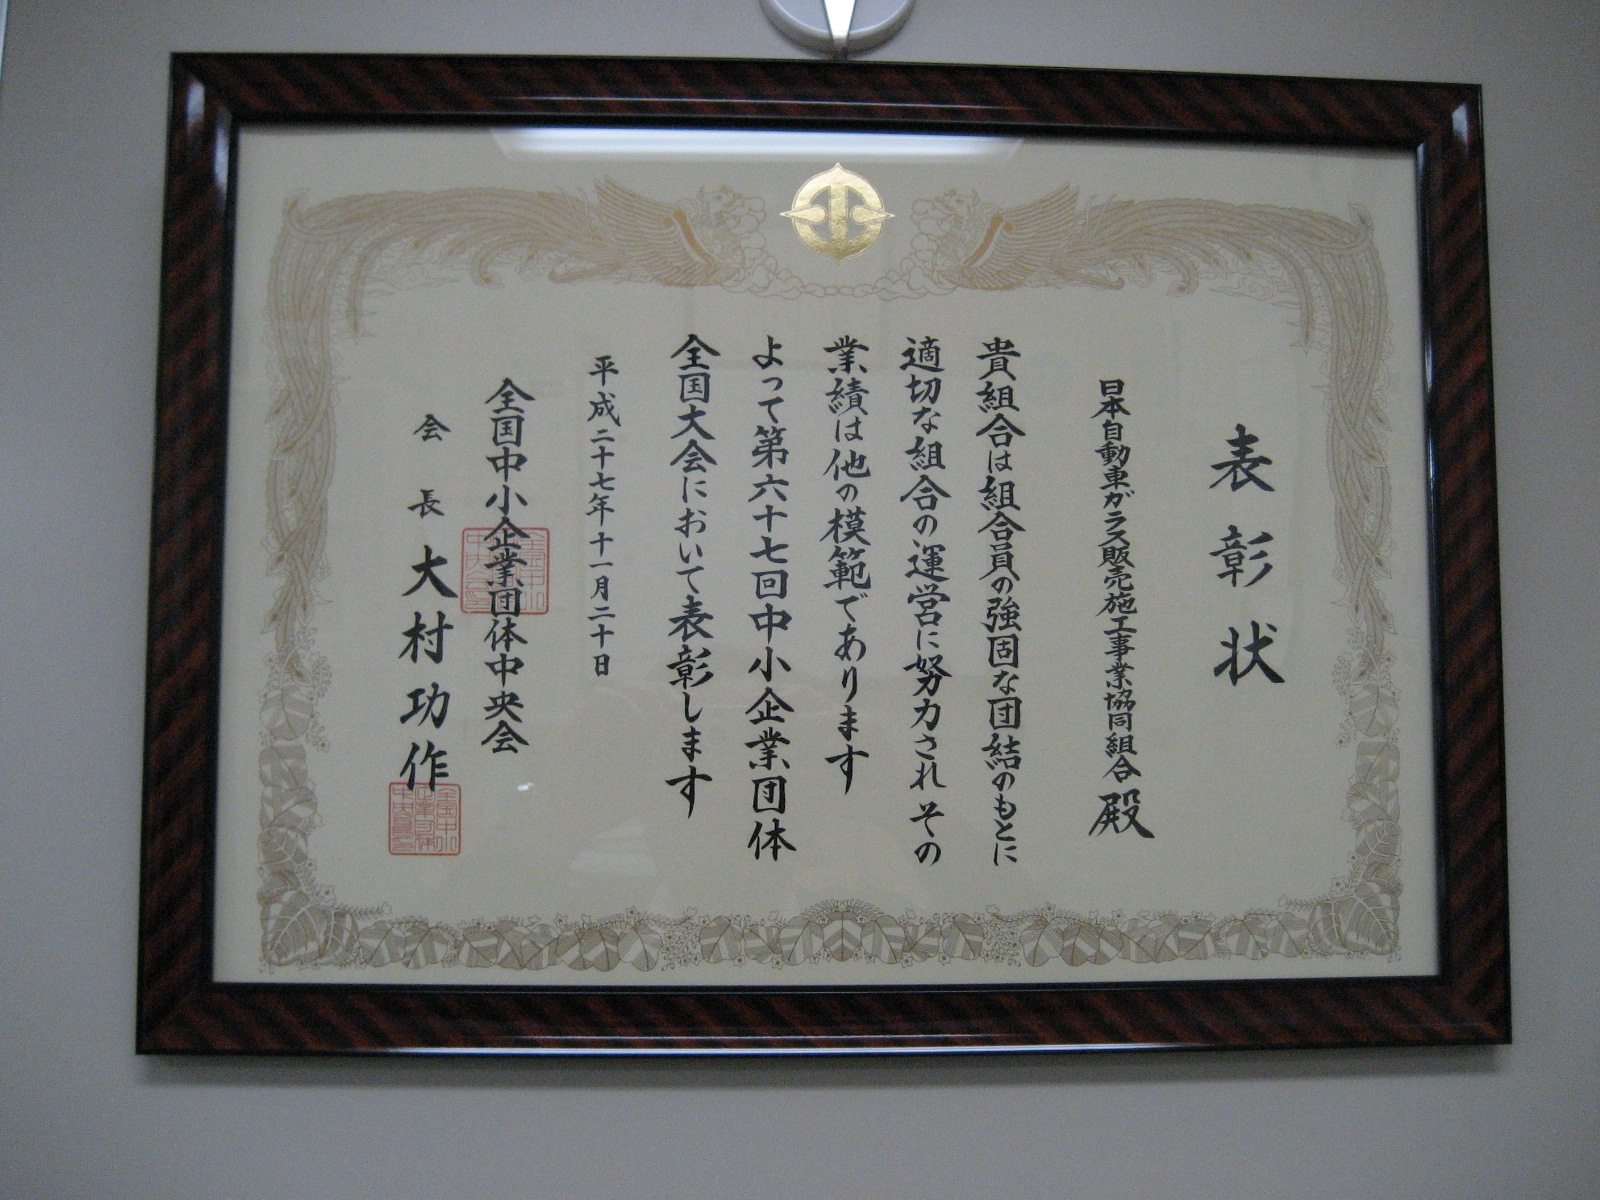 表彰状
日本自動車ガラス販売施工事業協同組合殿
貴組合は組合員の強固な団結のもとに
適切な組合の運営に努力されその
業績は他の模範であります
よって第六十七回中小企業団体
全国大会において表彰します
平成二十七年十一月二十日
全国中小企業団体中央会
会長大村功作